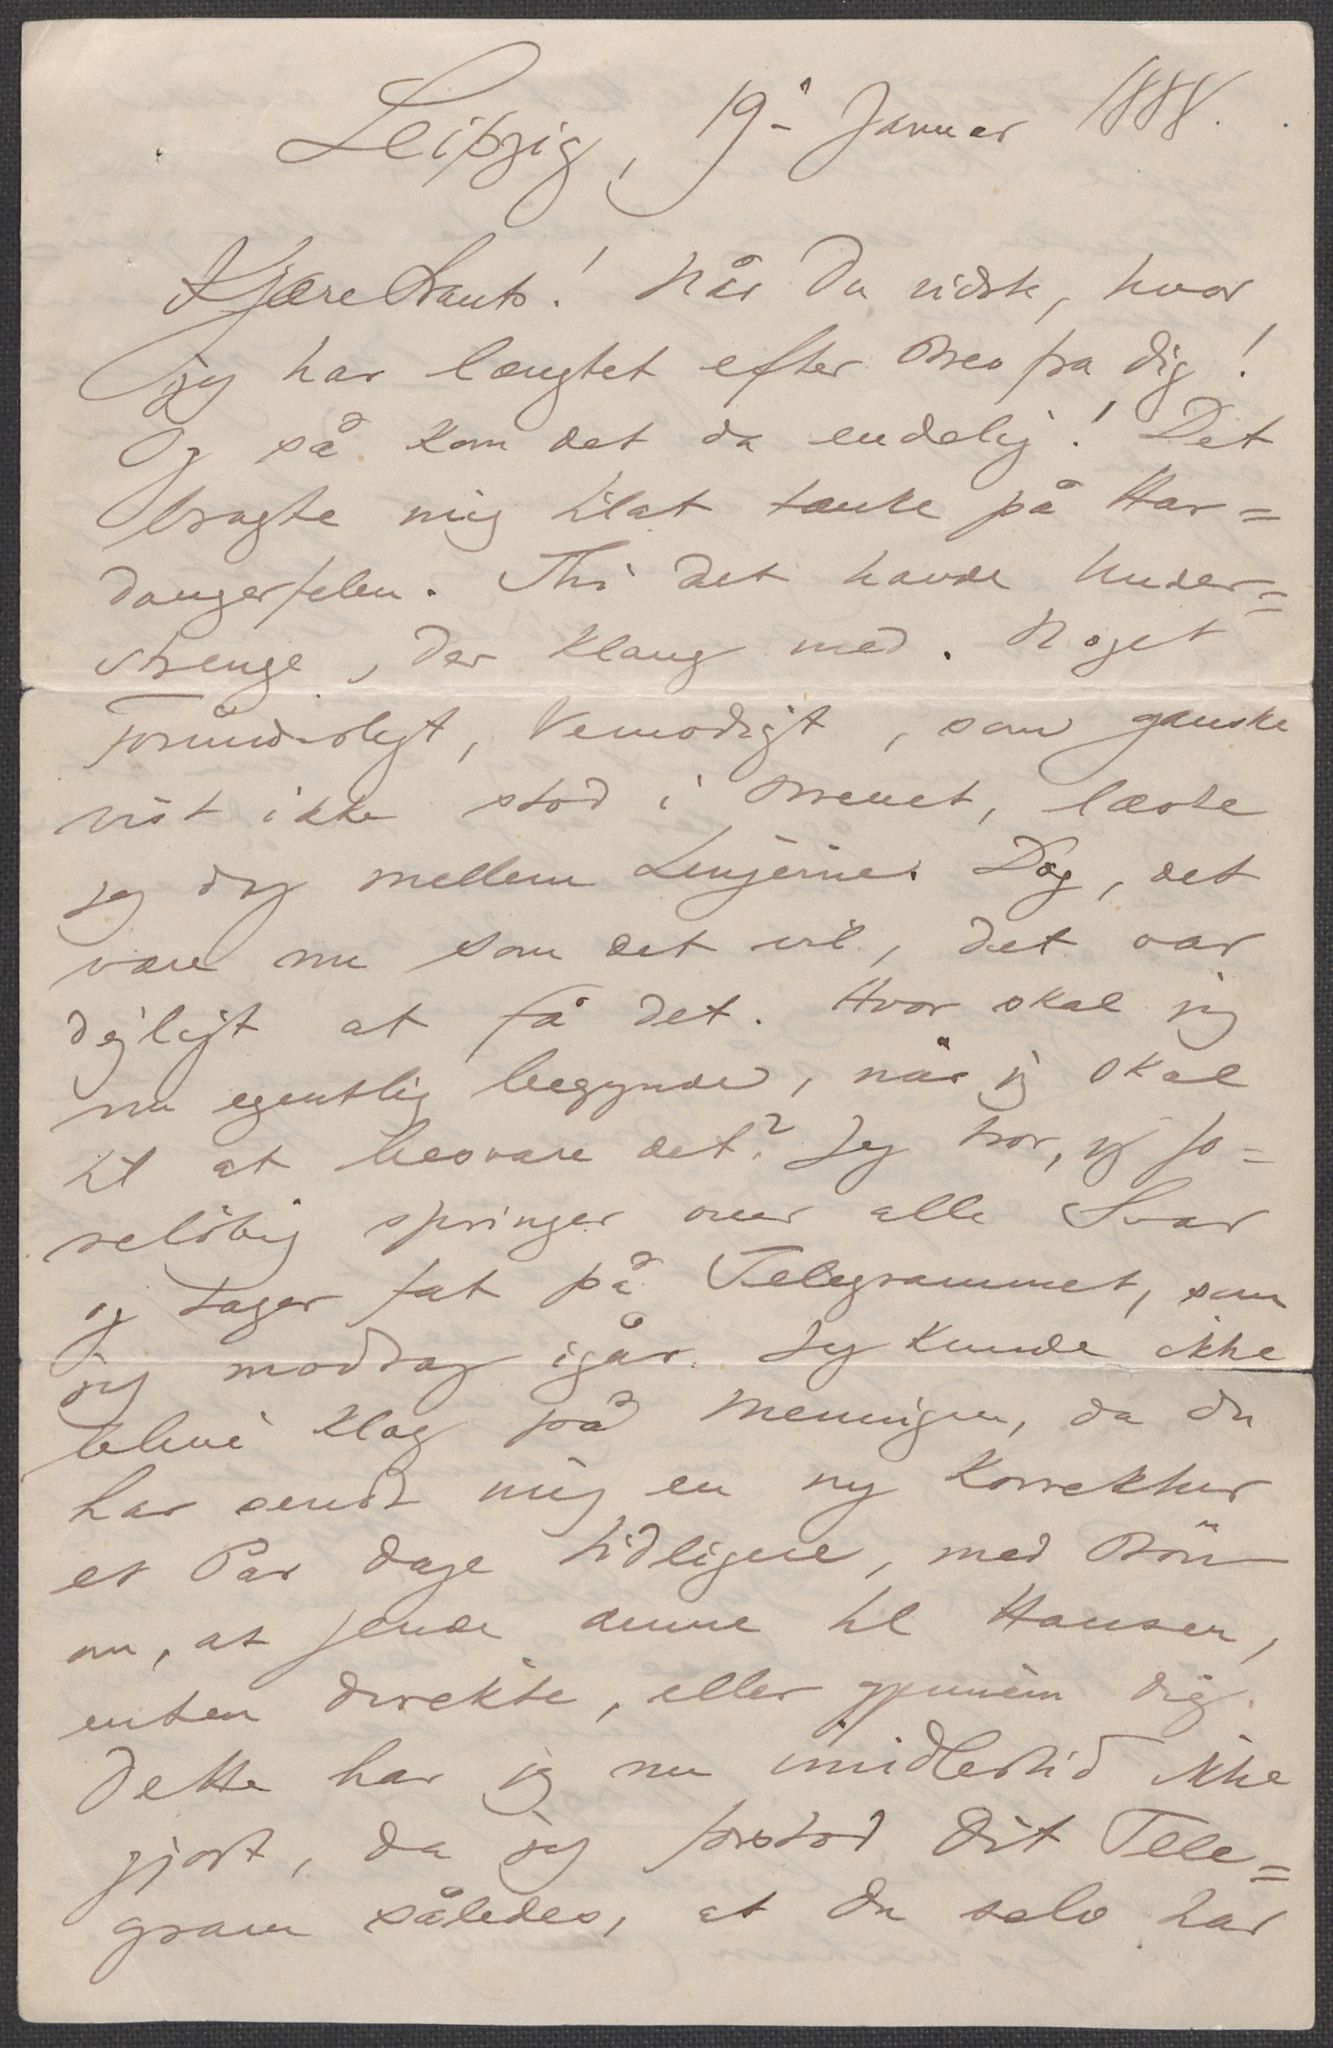 Leipzig, 19. Januar 1888.
Kjære Frants! Når Du vidste, hvor
jeg har længtet efter Brev fra dig!
Og så kom det da endelig! Det
bragte mig til at tænke på Har=
dangerfelen. Thi det havde Under=
strenge, der klang med. Noget
forunderligt, Vemodigt, som ganske
vist ikke stod i Brevet, læste
jeg dog mellem Linjerne. Dog, det
være nu som det vil, det var
dejligt at få det. Hvor skal jeg
nu egentlig begynde, når jeg skal
til at besvare det? Jeg tror, jeg fo=
reløbig springer over alle Svar
og tager fat på Telegrammet, som
jeg modtog igår. Jeg kunde ikke
blive klog på Meningen, da du
har sendt mig en ny Korrektur
et Par Dage tidligere, med Bön
om, at sende denne til Hansen,
enten direkte, eller gjennem dig.
Dette har jeg nu imidlertid ikke
gjort, da jeg forstod Dit Tele=
gram således, at du selv har